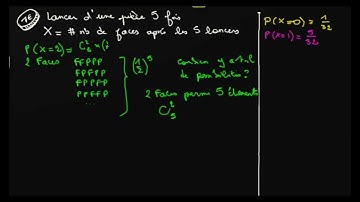 1E Lancer d'une pièce 5 fois
X = # nb de faces après les 5 lancers
P(X=2) = C²₅ × (½
2 Faces FFPPP
FPFPP
FPPFP
FPPPF
PFFPP
...
(1/2)⁵
combien y a-t-il
de possibilités ?
2 Faces parmi 5 Éléments
C²₅
P(X=0) = 1/32
P(X=1) = 5/32